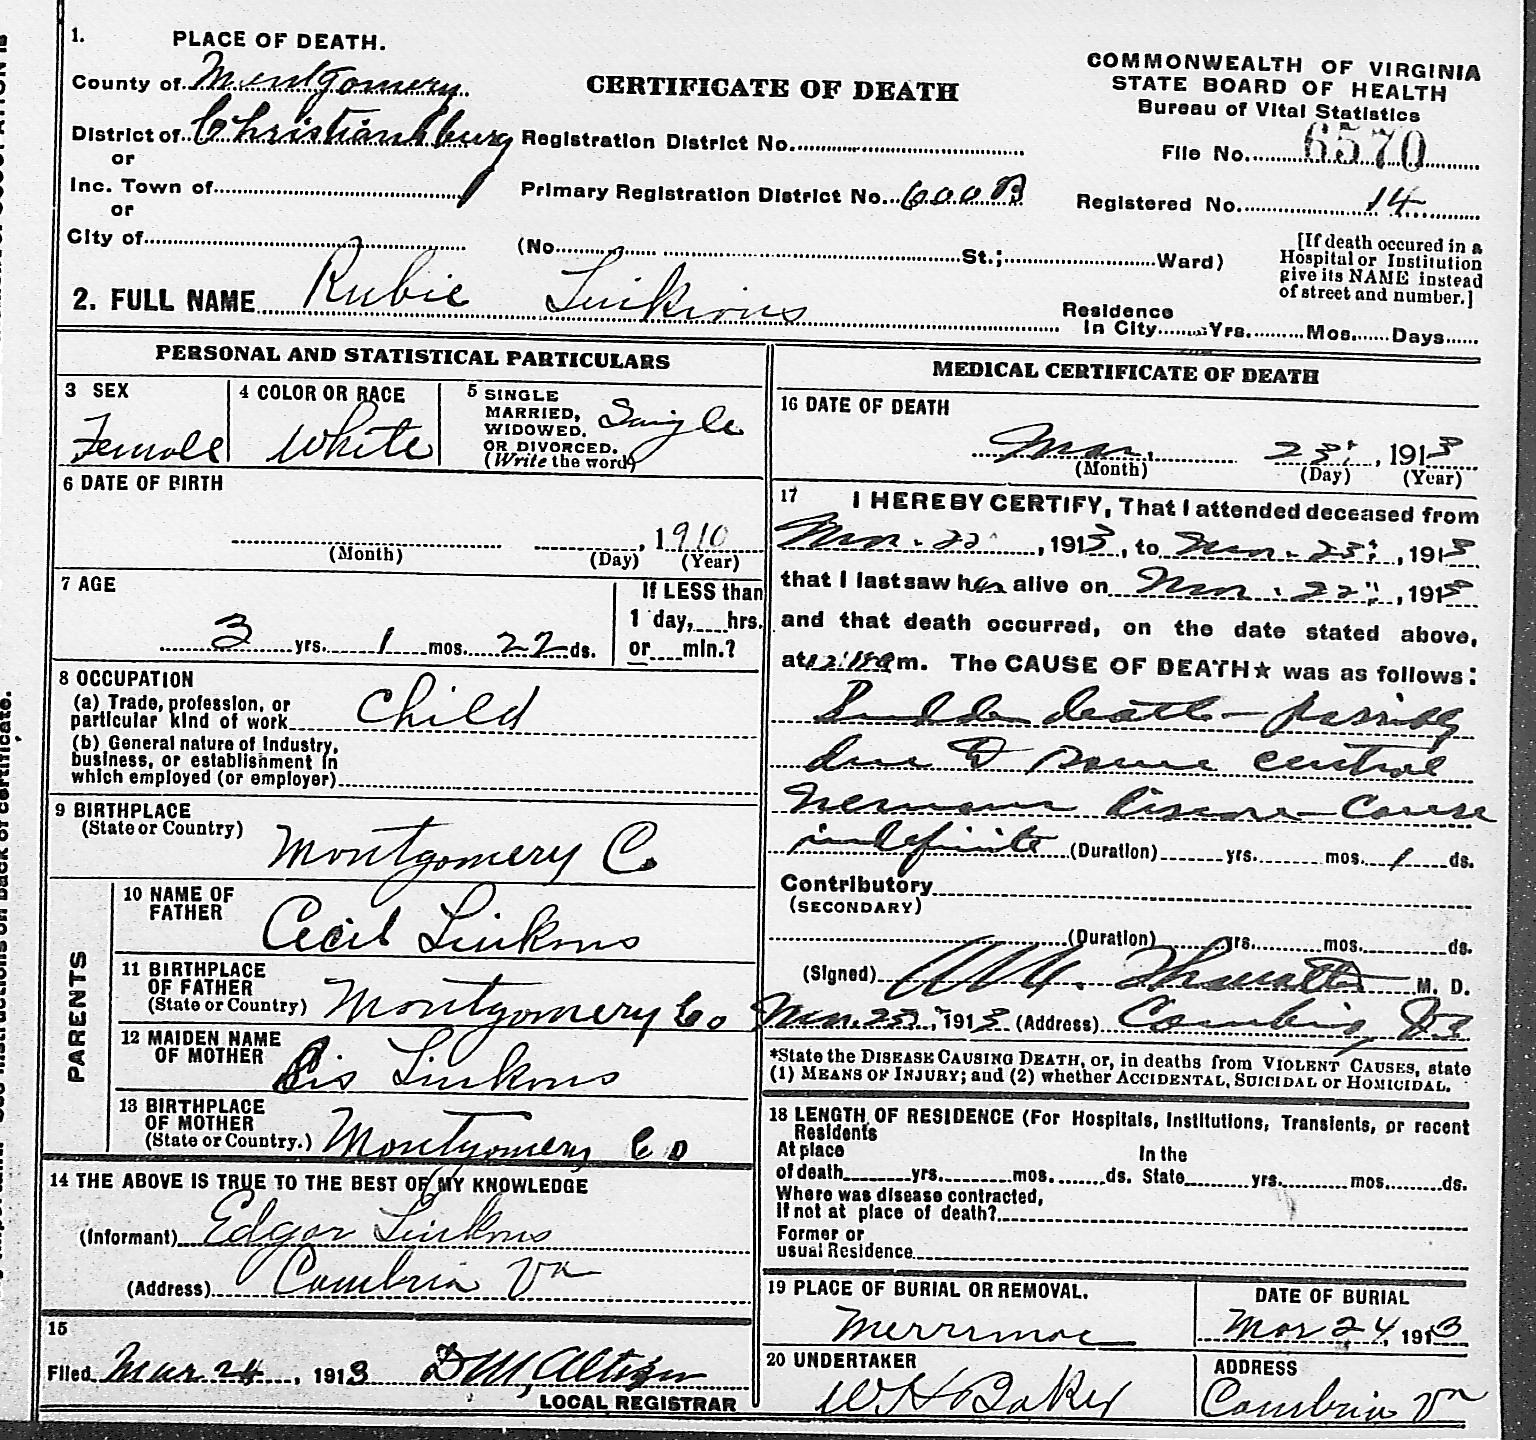 1. PLACE OF DEATH.
County of Montgomery
District of Christiansburg
or
Inc. Town of
or
City of
CERTIFICATE OF DEATH
Registration District No.
Primary Registration District No. 600B
(No. St.; Ward)
COMMONWEALTH OF VIRGINIA
STATE BOARD OF HEALTH
Bureau of Vital Statistics
File No. 6570
Registered No. 14
[If death occured in a
Hospital or Institution
give its NAME instead
of street and number.]
2. FULL NAME Rubie Linkous
Residence
In City Yrs. Mos. Days
PERSONAL AND STATISTICAL PARTICULARS
3 SEX
Female
4 COLOR OR RACE
White
5 SINGLE
MARRIED,
WIDOWED.
OR DIVORCED.
(Write the word)
Single
6 DATE OF BIRTH
1910
(Month) (Day) (Year)
7 AGE
3 yrs. 1 mos. 22 ds.
If LESS than
1 day, hrs.
or min.?
8 OCCUPATION
(a) Trade, profession, or
particular kind of work Child
(b) General nature of Industry,
business, or establishment in
which employed (or employer)
9 BIRTHPLACE
(State or Country)
Montgomery C.
PARENTS
10 NAME OF
FATHER
Cecil Linkous
11 BIRTHPLACE
OF FATHER
(State or Country) Montgomery Co
12 MAIDEN NAME
OF MOTHER
Linkous
13 BIRTHPLACE
OF MOTHER
(State or Country.) Montgomery Co
14 THE ABOVE IS TRUE TO THE BEST OF MY KNOWLEDGE
(Informant) Edgar Linkous
(Address) Cambria Va
15
Filed Mar 24, 1913
LOCAL REGISTRAR
MEDICAL CERTIFICATE OF DEATH
16 DATE OF DEATH
Mar. 23, 1913
(Month) (Day) (Year)
17 I HEREBY CERTIFY, That I attended deceased from
Mar. 22, 1913, to Mar. 23, 1913
that I last saw her alive on Mar. 22, 1913
and that death occurred, on the date stated above,
at m. The CAUSE OF DEATH★ was as follows:
Sudden death – possibly
due to some central
nervous disease – Cause
indefinite (Duration) yrs. mos. 1 ds.
Contributory
(SECONDARY)
(Duration) yrs. mos. ds.
(Signed) M. D.
Mar. 23, 1913 (Address) Cambria Va
*State the DISEASE CAUSING DEATH, or, in deaths from VIOLENT CAUSES, state
(1) MEANS OF INJURY; and (2) whether ACCIDENTAL, SUICIDAL or HOMICIDAL.
18 LENGTH OF RESIDENCE (For Hospitals, Institutions, Transients, or recent
Residents
At place In the
of death yrs. mos. ds. State yrs. mos. ds.
Where was disease contracted,
If not at place of death?
Former or
usual Residence
19 PLACE OF BURIAL OR REMOVAL.
Merrimac
DATE OF BURIAL
Mar 24, 1913
20 UNDERTAKER
W H Baker
ADDRESS
Cambria Va